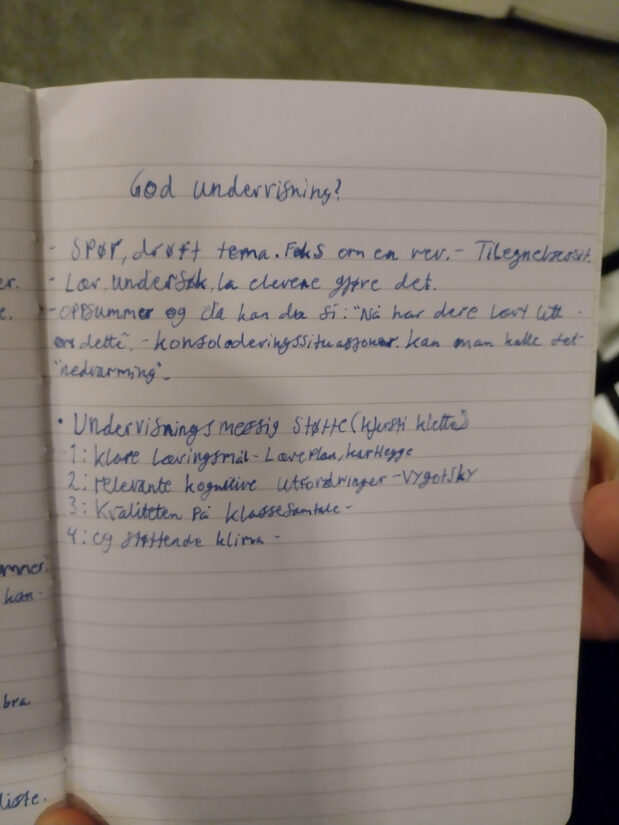 God undervisning?
- Spør, drøft tema. Feks om en rev. - Tilegnelsessit.
er. - Lær, undersøk, la elevene gjøre det.
e. - oppsummer og da kan du si: "Nå har dere lært litt
om dette". - konsolideringssituasjoner. kan man kalle det
"nedvarming".
• Undervisningsmessig støtte (kjersti klette)
1: klare læringsmål - Læreplan, kartlegge
2: relevante kognitive utfordringer - Vygotsky
3: Kvaliteten på klassesamtale -
4: og støttende klima -
kan -
bra.
liste.